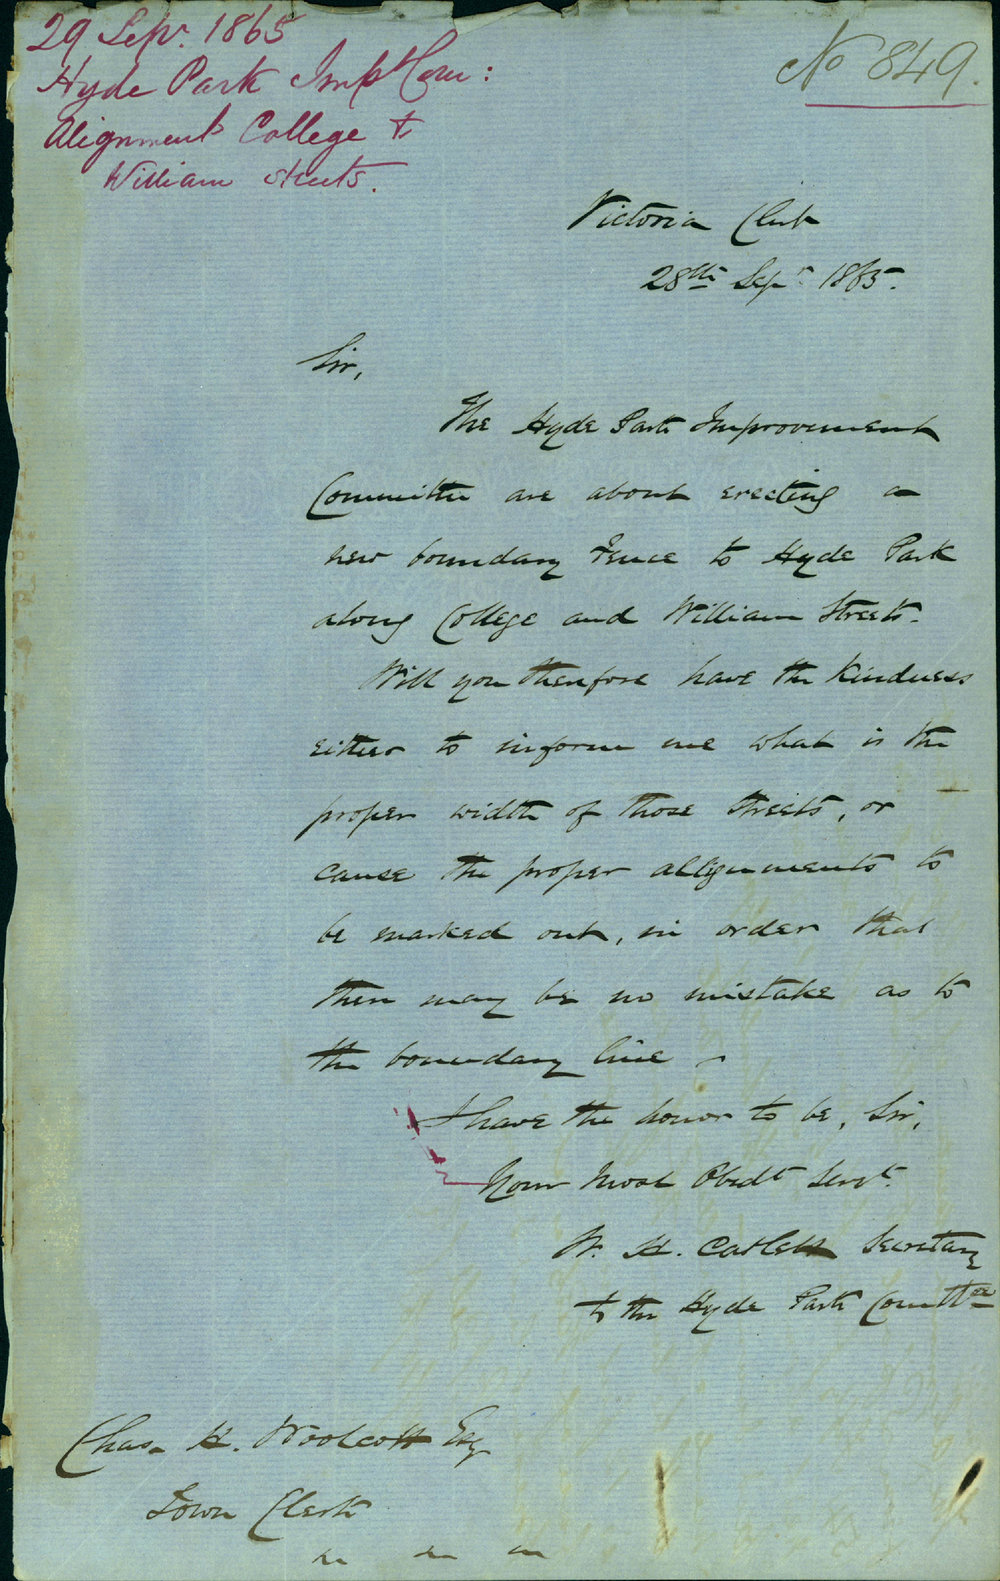 29 Sepr. 1865
Hyde Park Impt Com:
Alignment College &
William Streets.
No 849.
Victoria Club
28th Sepr 1865.
Sir,
The Hyde Park Improvement
Committee are about erecting a
new boundary Fence to Hyde Park
along College and William Streets.
Will you therefore have the kindness
either to inform me what is the
proper width of those streets, or
cause the proper allignments to
be marked out, in order that
there may be no mistake as to
the boundary line
I have the honor to be, Sir,
Your Most Obedt Servt.
W. H. Catlett Secretary
to the Hyde Park Committee
Chas. H. Woolcott Esq
Town Clerk